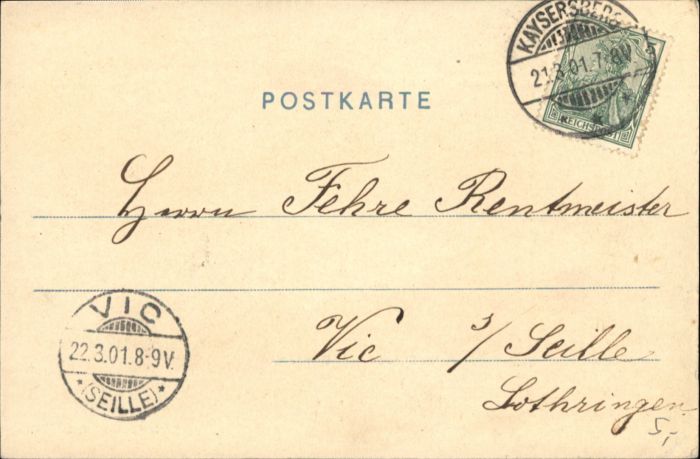 KAYSERSBERG
21.3.01.7-8V.
REICHSPOST
POSTKARTE
Herrn Fehre Rentmeister
VIC
22.3.01.8-9V.
*(SEILLE)*
Vic s/Seille
Lothringen
5,-